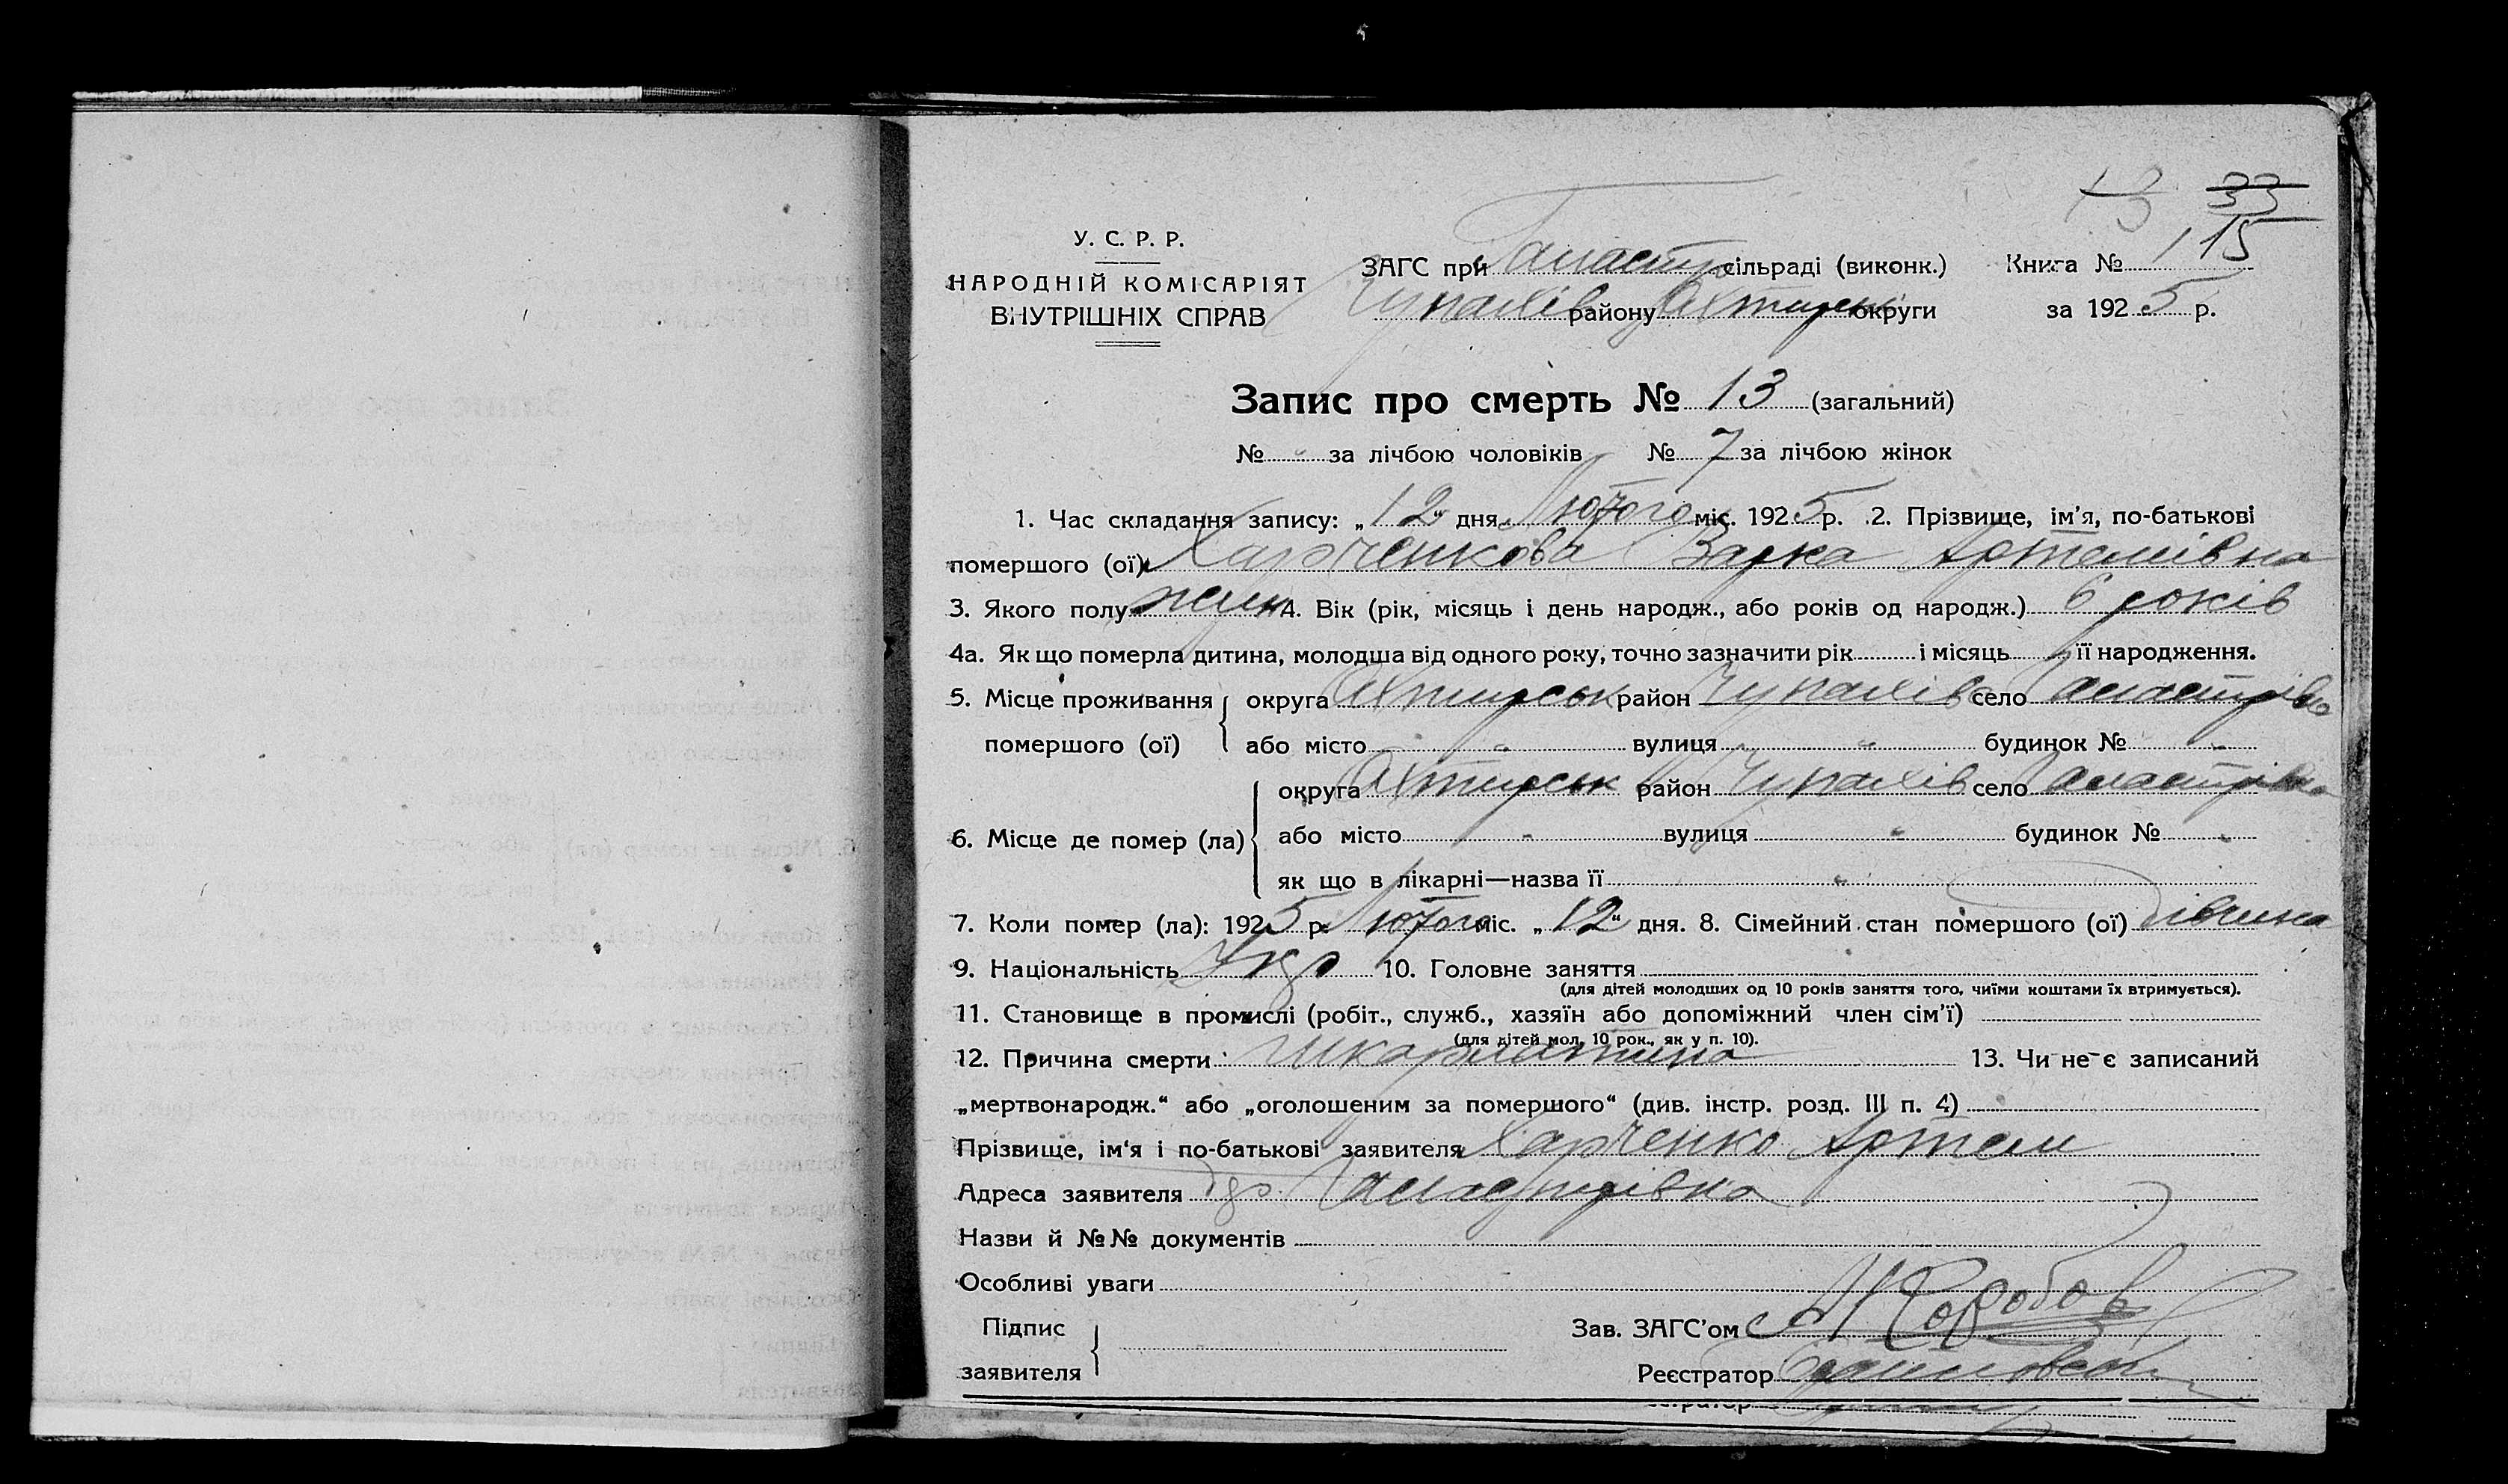 13 33
У. С. Р. Р.
НАРОДНІЙ КОМІСАРІЯТ
ВНУТРІШНІХ СПРАВ
ЗАГС при сільраді (виконк.) Книга № 115
Чупахів району Охтирськ округи за 1925 р.
Запис про смерть № 13 (загальний)
№ " за лічбою чоловіків № 7 за лічбою жінок
1. Час складання запису: „12" дня Лютого міс. 1925 р. 2. Прізвище, ім'я, по-батькові
помершого (ої) Харченкова Варка Артемівна
3. Якого полу жіноч 4. Вік (рік, місяць і день народж., або років од народж.) 6 років
4а. Як що померла дитина, молодша від одного року, точно зазначити рік і місяць її народження.
5. Місце проживання округа Охтирськ район Чупахів село
помершого (ої) або місто " вулиця " будинок № "
округа Охтирськ район Чупахів село
6. Місце де помер (ла) або місто " вулиця " будинок № "
як що в лікарні—назва її "
7. Коли помер (ла): 1925 р. Лютого міс. „12" дня. 8. Сімейний стан помершого (ої) Дівчина
9. Національність Укр 10. Головне заняття
(для дітей молодших од 10 років заняття того, чиїми коштами їх втримується).
11. Становище в промислі (робіт., служб., хазяїн або допоміжний член сім'ї)
(для дітей мол. 10 рок., як у п. 10).
12. Причина смерти: шкарлатина 13. Чи не є записаний
„мертвонародж." або „оголошеним за помершого" (див. інстр. розд. III п. 4)
Прізвище, ім'я і по-батькові заявителя Харченко Артем
Адреса заявителя
Назви й №№ документів
Особливі уваги
Підпис
заявителя
Зав. ЗАГС'ом
Реєстратор